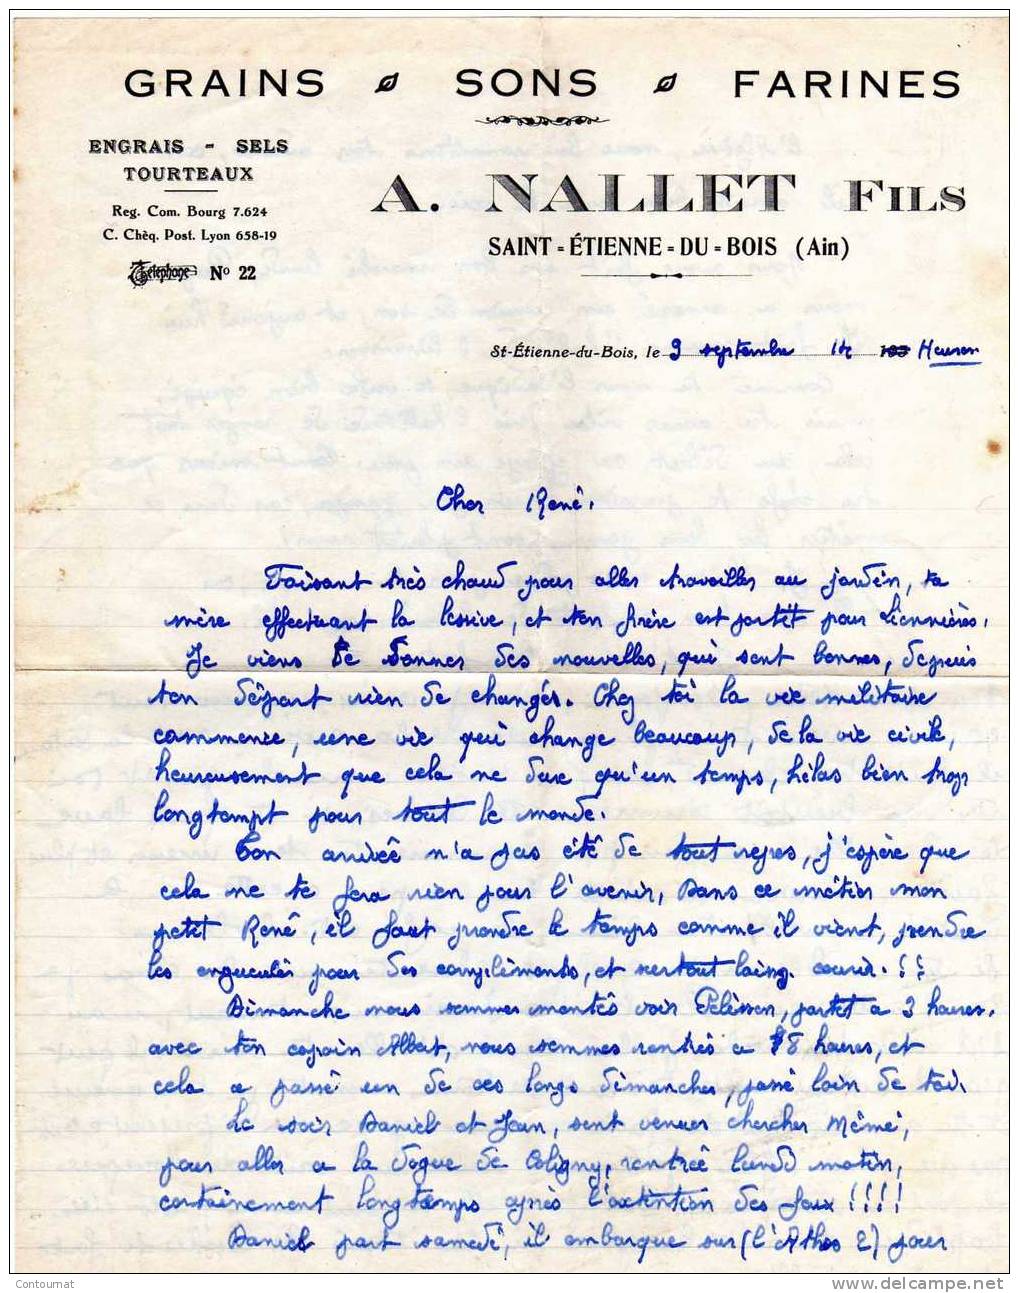 GRAINS SONS FARINES
ENGRAIS - SELS
TOURTEAUX
Reg. Com. Bourg 7.624
C. Chèq. Post. Lyon 658-19
Téléphone Nº 22
A. NALLET FILS
SAINT-ÉTIENNE-DU-BOIS (Ain)
St-Étienne-du-Bois, le 9 septembre 14 Heures
Cher René.
Faisant très chaud pour aller travailler au jardin, ta
mère effectuant la lessive, et ton frère est partit pour
Je viens te donner des nouvelles, qui sont bonnes, depuis
ton départ rien de changés. Chez toi la vie militaire
commence, une vie qui change beaucoup, de la vie civile,
heureusement que cela ne dure qu'un temps, hélas bien trop
longtempt pour tout le monde.
Ton arrivée n'a pas été de tout repos, j'espère que
cela ne te fera rien pour l'avenir, Dans ce métier mon
petit René, il faut prendre le temps comme il vient, prendre
les engueulés pour des compliments, et surtout laing. courir. !!
Dimanche nous sommes montés voir Pélisson, partit a 3 heures.
avec ton copain Albert, nous sommes rentrés a 8 heures, et
cela a passé un de ces longs dimanches, passé loin de toi.
Le soir Daniel et Jean, sont venus chercher Mémé,
pour aller a la vogue de Coligny, rentrée lundi matin,
certainement longtemps après l'extintion des feux !!!!
Daniel part samedi, il embarque sur (l'Athos 2) pour
Contournat
www.delcampe.net